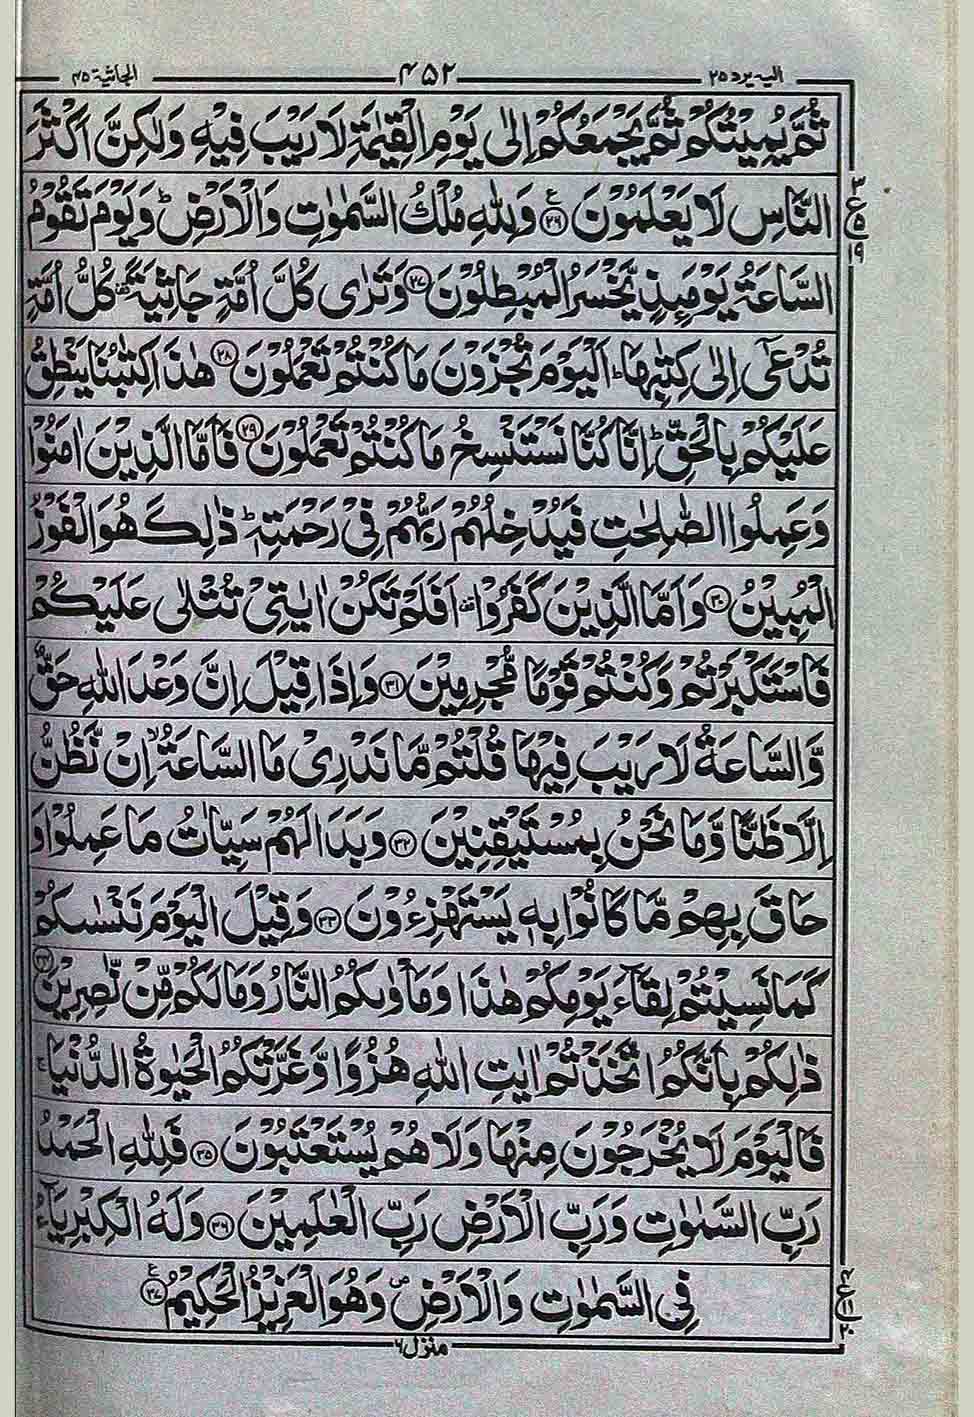 الیه یرد ۲۵
۴۵۲
الجاثیة ۴۵
ثُمَّ يُمِيْتُكُمْ ثُمَّ يَجْمَعُكُمْ اِلٰى يَوْمِ الْقِيٰمَةِ لَا رَيْبَ فِيْهِ وَلٰكِنَّ اَكْثَرَ
النَّاسِ لَا يَعْلَمُوْنَ ۲۶ ع وَلِلّٰهِ مُلْكُ السَّمٰوٰتِ وَالْاَرْضِ ؕ وَيَوْمَ تَقُوْمُ
السَّاعَةُ يَوْمَئِذٍ يَّخْسَرُ الْمُبْطِلُوْنَ ۲۷ وَتَرٰى كُلَّ اُمَّةٍ جَاثِيَةً ۫ كُلُّ اُمَّةٍ
تُدْعٰۤى اِلٰى كِتٰبِهَا ؕ اَلْيَوْمَ تُجْزَوْنَ مَا كُنْتُمْ تَعْمَلُوْنَ ۲۸ هٰذَا كِتٰبُنَا يَنْطِقُ
عَلَيْكُمْ بِالْحَقِّ ؕ اِنَّا كُنَّا نَسْتَنْسِخُ مَا كُنْتُمْ تَعْمَلُوْنَ ۲۹ فَاَمَّا الَّذِيْنَ اٰمَنُوْا
وَعَمِلُوا الصّٰلِحٰتِ فَيُدْخِلُهُمْ رَبُّهُمْ فِيْ رَحْمَتِهٖ ؕ ذٰلِكَ هُوَ الْفَوْزُ
الْمُبِيْنُ ۳۰ وَاَمَّا الَّذِيْنَ كَفَرُوْا ۫ اَفَلَمْ تَكُنْ اٰيٰتِيْ تُتْلٰى عَلَيْكُمْ
فَاسْتَكْبَرْتُمْ وَكُنْتُمْ قَوْمًا مُّجْرِمِيْنَ ۳۱ وَاِذَا قِيْلَ اِنَّ وَعْدَ اللّٰهِ حَقٌّ
وَّالسَّاعَةُ لَا رَيْبَ فِيْهَا قُلْتُمْ مَّا نَدْرِيْ مَا السَّاعَةُ ۙ اِنْ نَّظُنُّ
اِلَّا ظَنًّا وَّمَا نَحْنُ بِمُسْتَيْقِنِيْنَ ۳۲ وَبَدَا لَهُمْ سَيِّاٰتُ مَا عَمِلُوْا وَ
حَاقَ بِهِمْ مَّا كَانُوْا بِهٖ يَسْتَهْزِءُوْنَ ۳۳ وَقِيْلَ الْيَوْمَ نَنْسٰىكُمْ
كَمَا نَسِيْتُمْ لِقَآءَ يَوْمِكُمْ هٰذَا وَمَاْوٰىكُمُ النَّارُ وَمَا لَكُمْ مِّنْ نّٰصِرِيْنَ ۳۴
ذٰلِكُمْ بِاَنَّكُمُ اتَّخَذْتُمْ اٰيٰتِ اللّٰهِ هُزُوًا وَّغَرَّتْكُمُ الْحَيٰوةُ الدُّنْيَا ۚ
فَالْيَوْمَ لَا يُخْرَجُوْنَ مِنْهَا وَلَا هُمْ يُسْتَعْتَبُوْنَ ۳۵ فَلِلّٰهِ الْحَمْدُ
رَبِّ السَّمٰوٰتِ وَرَبِّ الْاَرْضِ رَبِّ الْعٰلَمِيْنَ ۳۶ وَلَهُ الْكِبْرِيَآءُ
فِي السَّمٰوٰتِ وَالْاَرْضِ ۪ وَهُوَ الْعَزِيْزُ الْحَكِيْمُ ۳۷ ع
۳
ع ۵
۱۹
۴
ع ۱۱
۲۰
منزل ۶